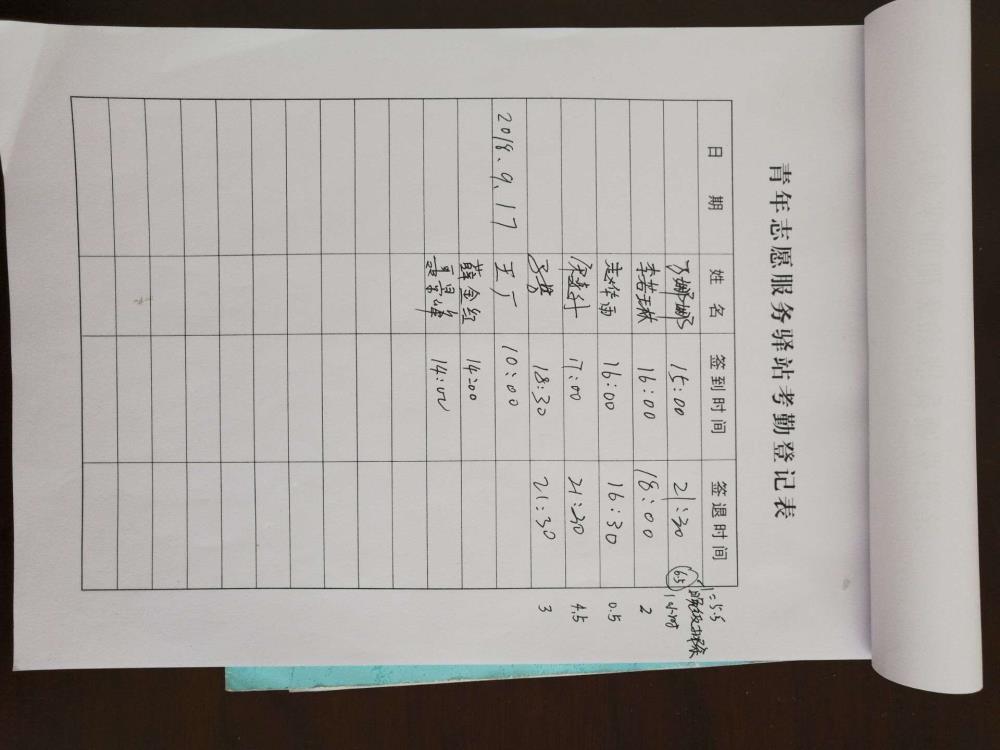 青年志愿服务驿站考勤登记表
日期 姓名 签到时间 签退时间
娜娜 15:00 21:30 6.5 1小时
李若琳 16:00 18:00 2
赵佳雨 16:00 16:30 0.5
17:00 21:30 4.5
18:30 21:30 3
2018.9.17 王广 10:00
薛金红 14:00
聂景峰 14:00